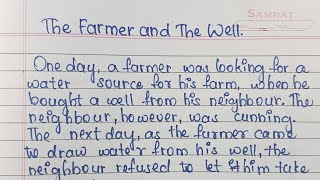 SAMRAT
The Farmer and The Well.
One day, a farmer was looking for a
water source for his farm, when he
bought a well from his neighbour. The
neighbour, however, was cunning.
The next day, as the farmer came
to draw water from his well, the
neighbour refused to let him take